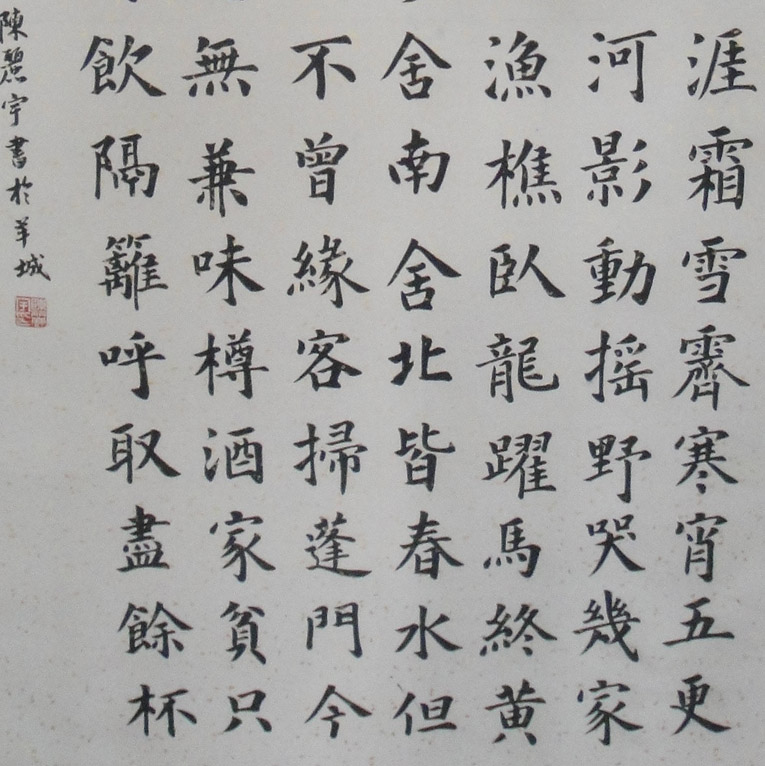 涯霜雪霽寒宵五更
河影動摇野哭幾家
漁樵臥龍躍馬終黄
舍南舍北皆春水但
不曾緣客掃蓬門今
無兼味樽酒家貧只
飲隔籬呼取盡餘杯
陳麗宇書於羊城